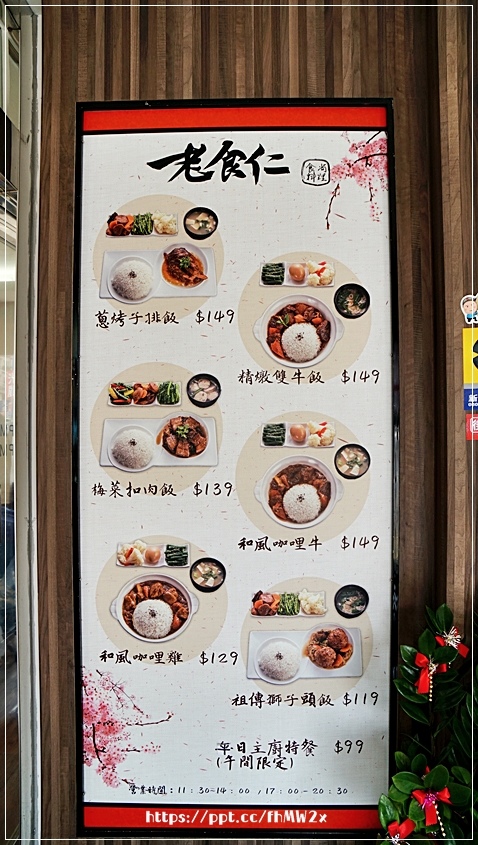 老食仁
食尚
料理
蔥烤子排飯 $149
精燉雙牛飯 $149
梅菜扣肉飯 $139
和風咖哩牛 $149
和風咖哩雞 $129
祖傳獅子頭飯 $119
單日主廚特餐 $99
(午間限定)
營業時間：11：30-14：00 ，17：00-20：30
https://ppt.cc/fhMW2x